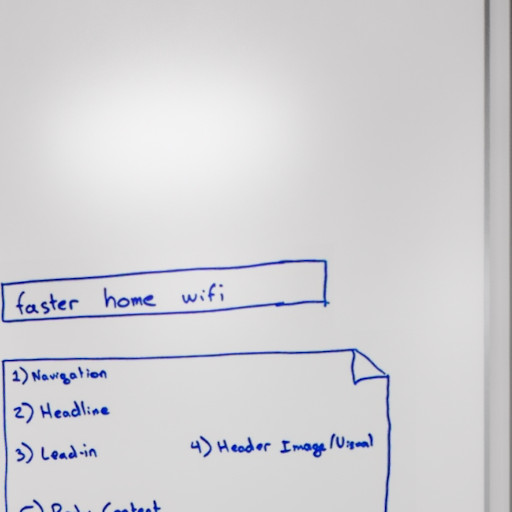 faster home wifi
1) Navigation
2) Headline
3) Lead-in 4) Header Image/Visual
5) Body Content